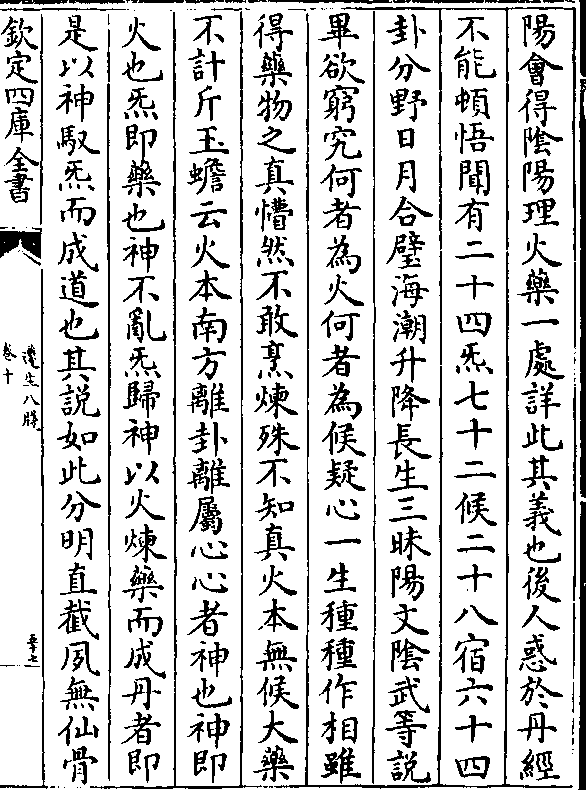 陽會得陰陽理火藥一處詳此其義也後人惑於丹經
不能頓悟聞有二十四炁七十二候二十八宿六十四
卦分野日月合璧海潮升降長生三昧陽文陰武等說
畢欲窮究何者為火何者為候疑心一生種種作相雖
得藥物之真懵然不敢烹煉殊不知真火本無候大藥
不計斤玉蟾云火本南方離卦離屬心心者神也神即
火也炁即藥也神不亂炁歸神以火煉藥而成丹者即
是以神馭炁而成道也其說如此分明直截夙無仙骨
欽定四庫全書
遵生八牋
卷十
五十七